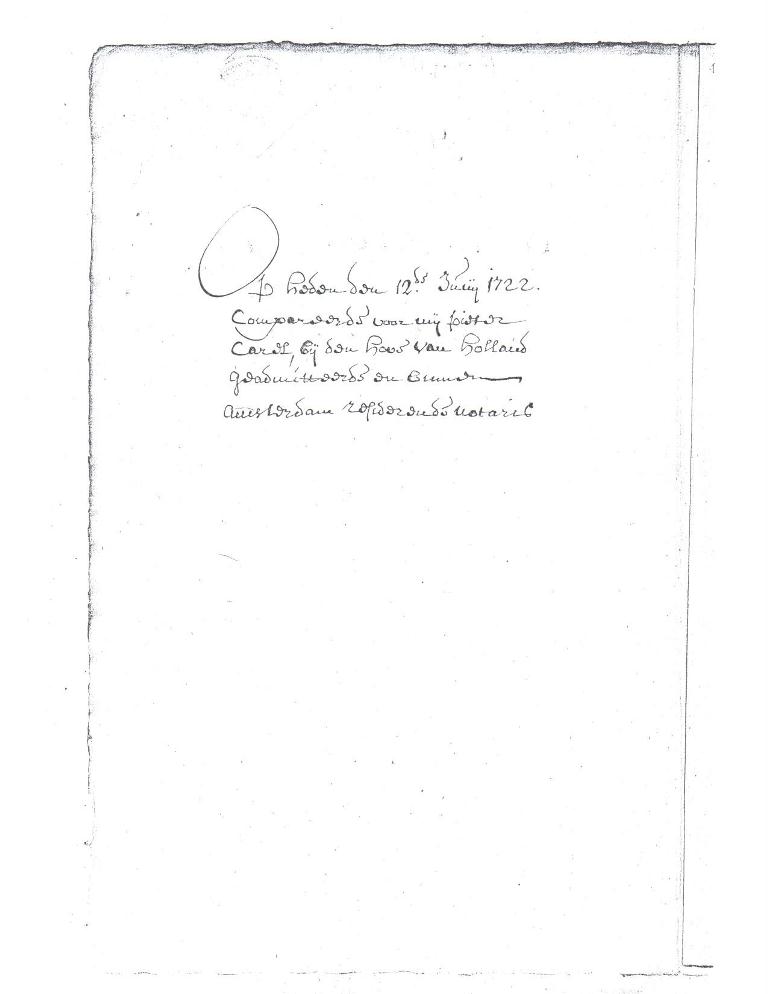 Op heden den 12.de Junij 1722.
Compareerde voor mij pieter
Carel, bij den hove van holland
geadmitteerde en binnen
Amsterdam residerende notaris